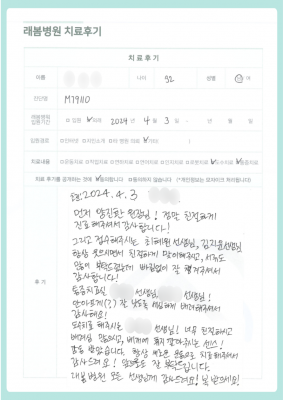 래봄병원 치료후기
치료후기
이름 나이 92 성별 남 여
진단명 M79110
래봄병원 입원기간 입원 외래 2024년 4월 3일 ~ 년 월 일
입원경로 인터넷 지인소개 타 병원 의뢰 기타( )
치료내용 운동치료 작업치료 언어치료 연하치료 인지치료 로봇치료 도수치료 통증치료
치료 후기를 공개하는 것에 동의합니다 동의하지 않습니다 (*개인정보는 모자이크 처리됩니다)
후기
2024.4.3
먼저 양진환 원장님! 정말 친절하게
진료해주셔서 감사합니다!
그리고 접수해주시는 최혜원선생님, 김지윤선생님
항상 웃으면서 친절하게 맞이해주시고, 서류도
많이 부탁드렸는데 빠짐없이 잘 챙겨주셔서
감사합니다!
선생님, 선생님!
안아프게(?) 잘 세심하게 배려해주셔서
감사해요!
도수치료 해주시는 선생님! 너무 친절하시고
배려심 많으시고, 베개에 향기 깔아주시는 센스!
감동 받았습니다. 항상 밝은 웃음으로 치료해주셔서
감사드려요! 앞으로도 잘 부탁드립니다.
래봄병원 모든 선생님께 감사드려요! 복 받으세요!